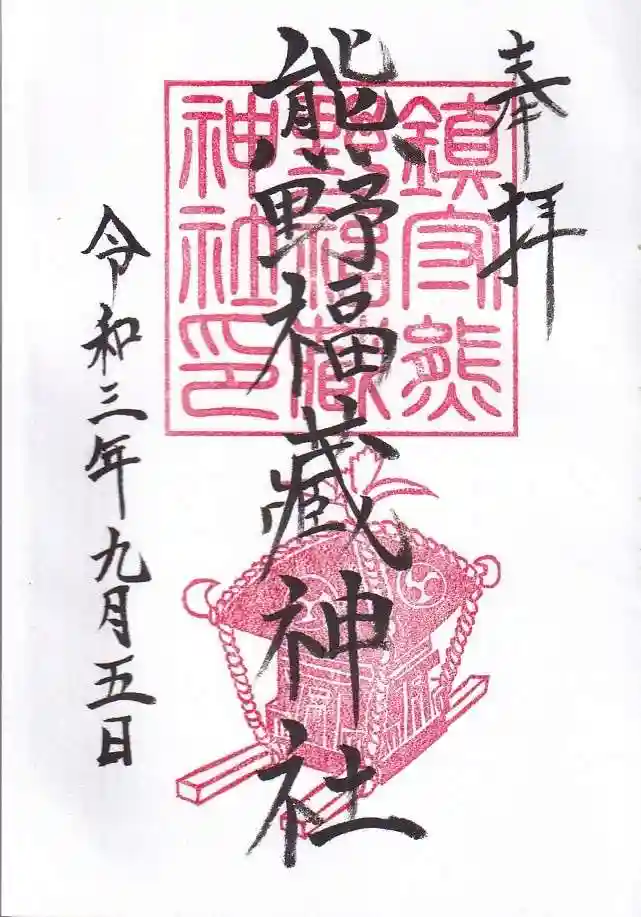 奉拝
熊野福藏神社
令和三年九月五日
鎮守熊
野福藏
神社印